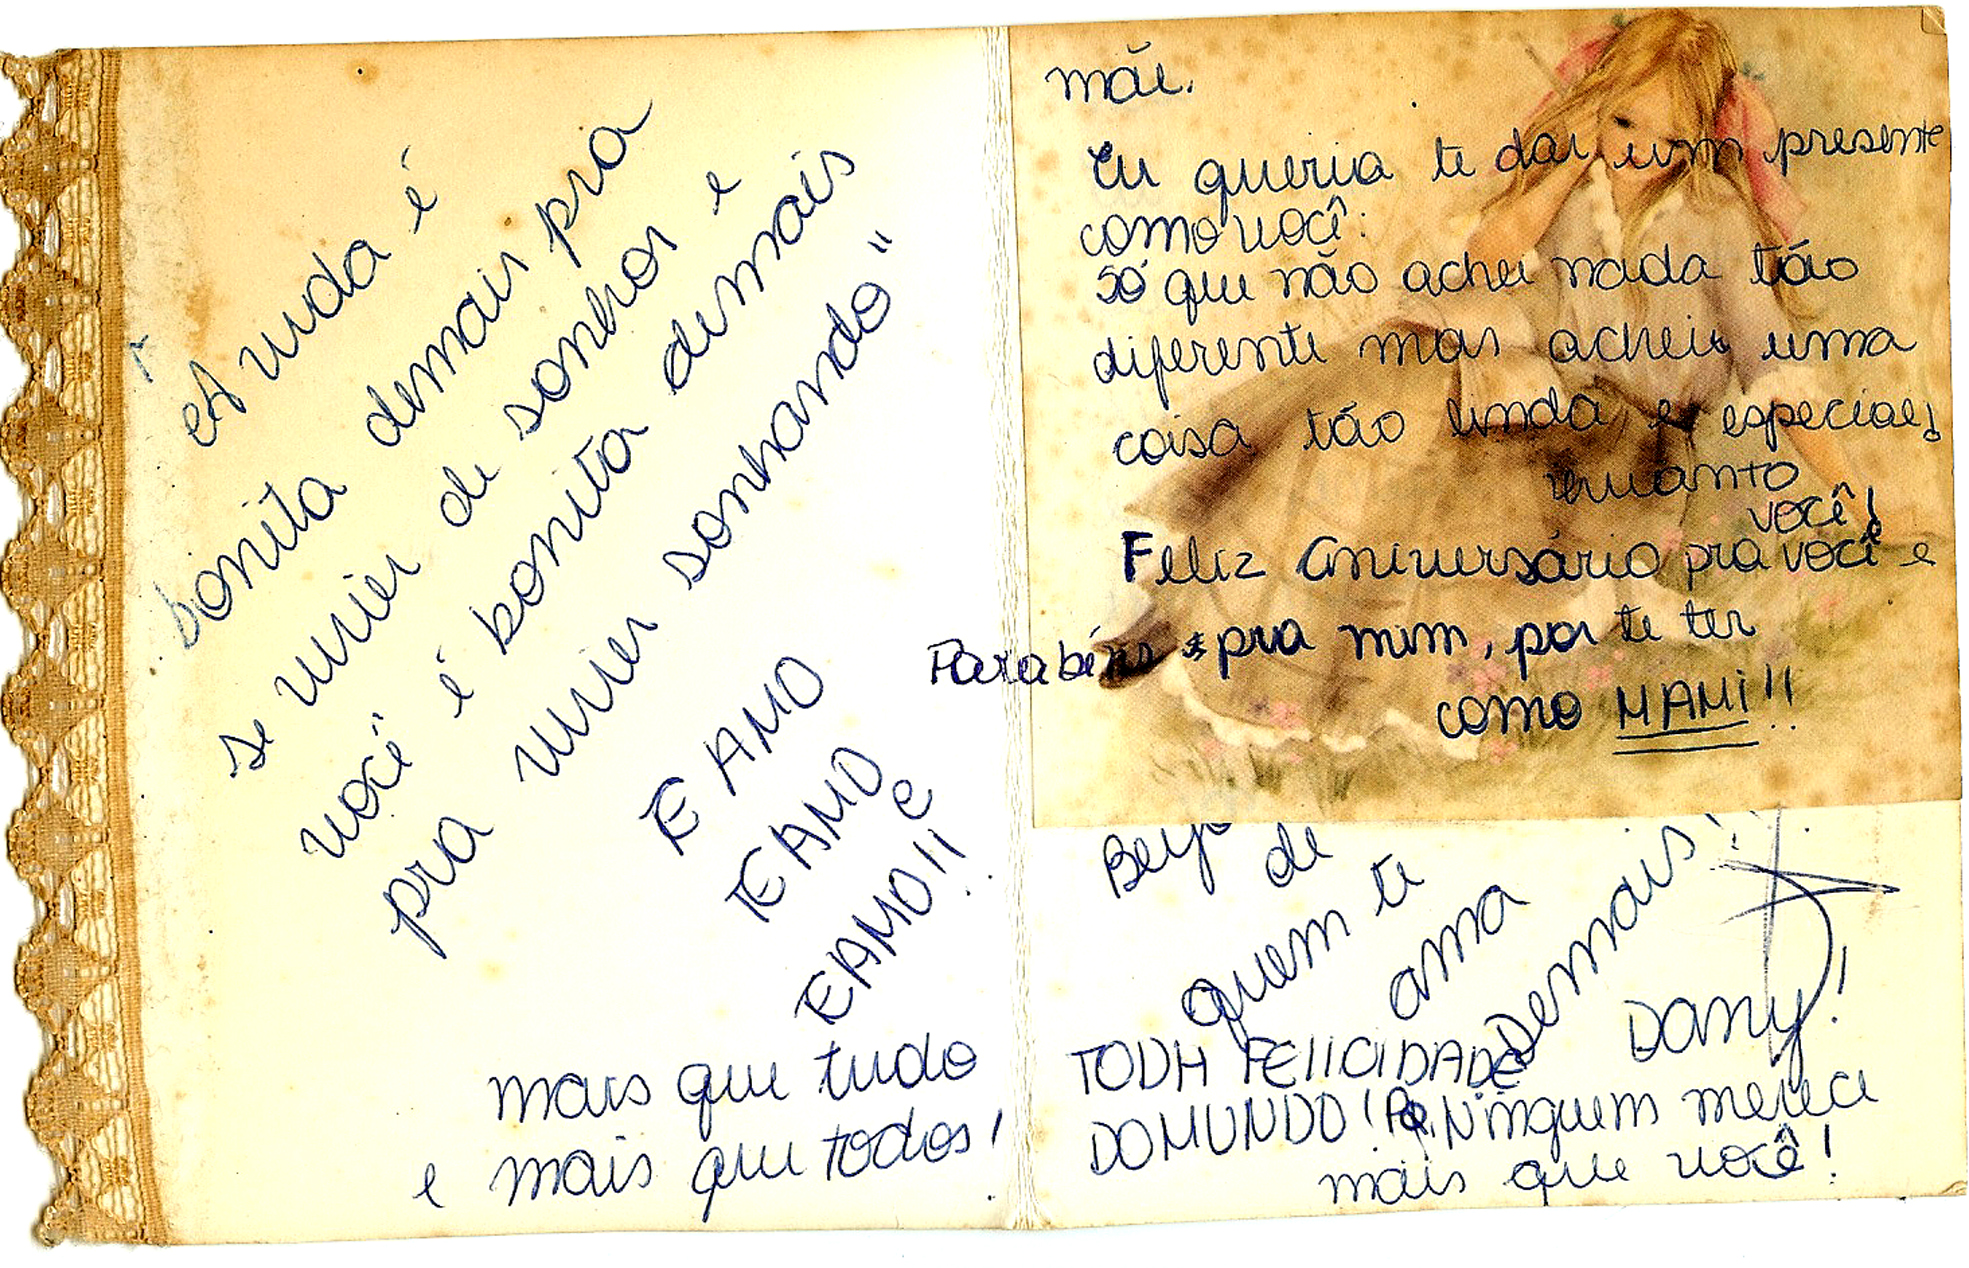 "A vida é
bonita demais pra
se viver de sonhos e
você é bonita demais
pra viver sonhando"
TE AMO
TE AMO
e
TE AMO!!
mais que tudo
e mais que todos!
mãe.
Eu queria te dar um presente
como você:
só que não achei nada tão
diferente mas achei uma
coisa tão linda e especial
quanto
você!
Feliz aniversário pra você e
Parabéns pra mim, por te ter
como MAMI!!
de
quem te
ama
Demais!!
Dany!
TODA FELICIDADE
DO MUNDO! Pq. Ninguem merece
mais que você!